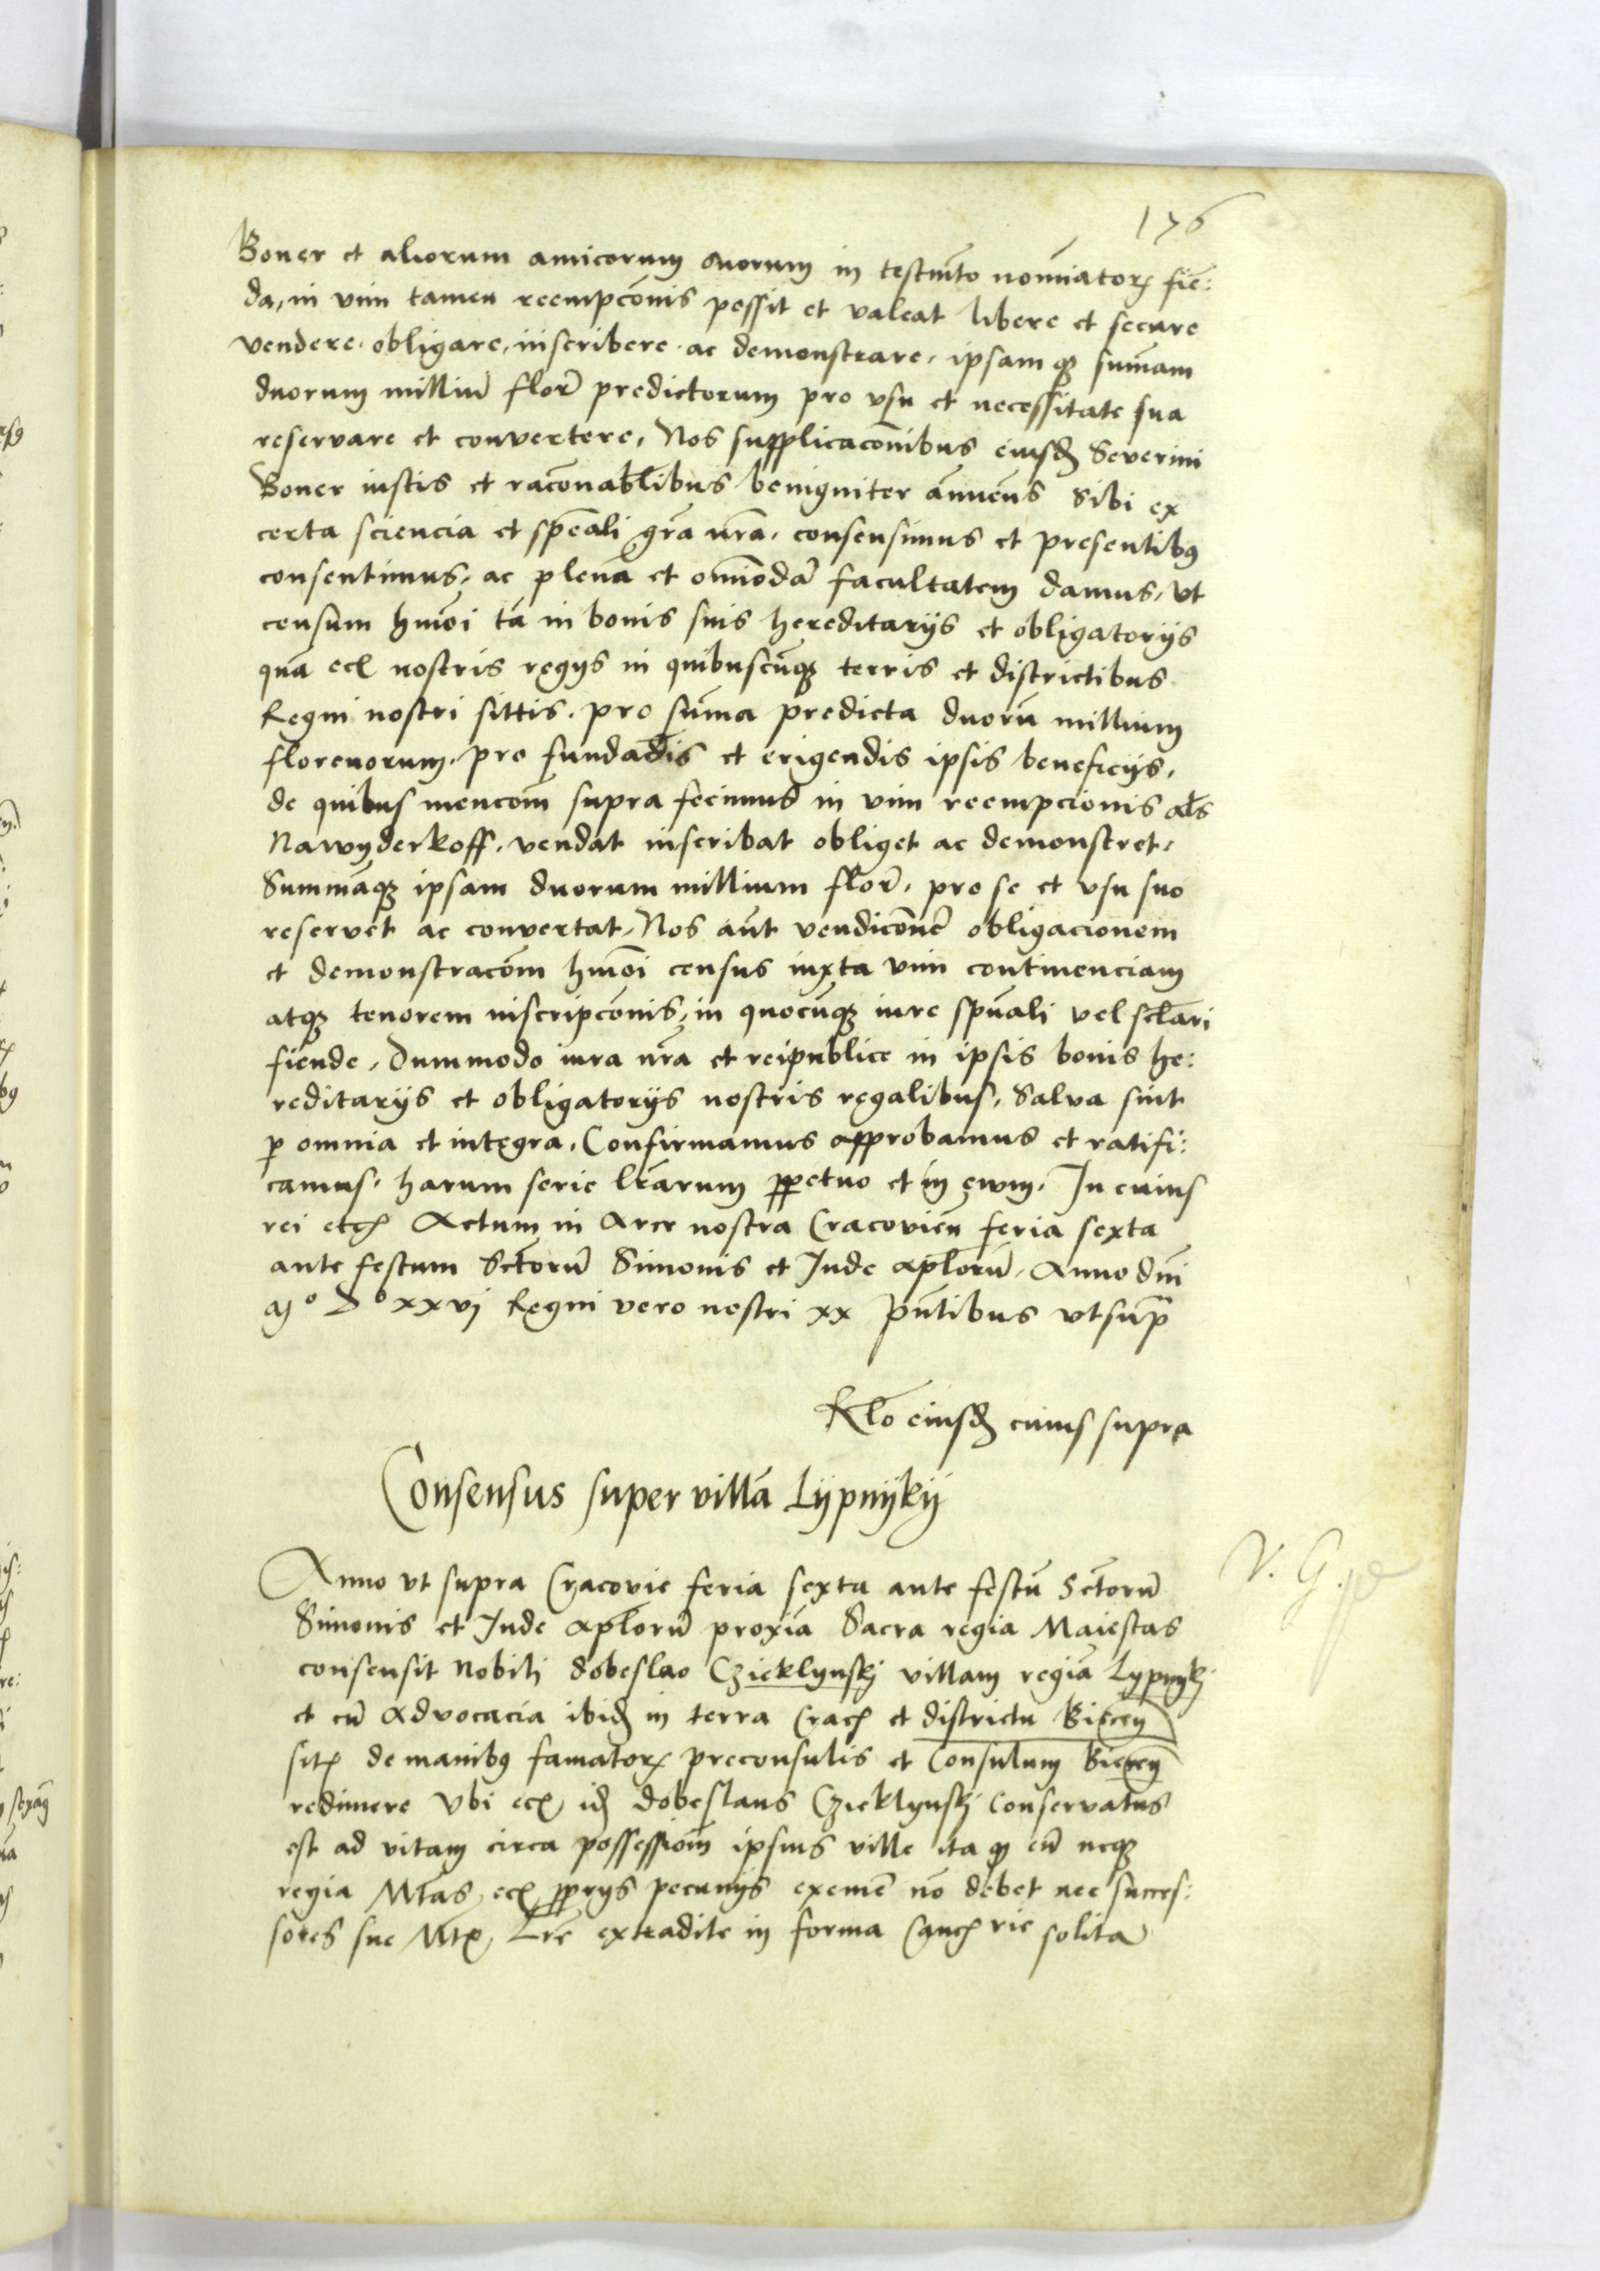 176
Boner et aliorum amicorum suorum in testm̄to nom̄iatorꝝ fiē:
da, in vim tamen reempcōnis possit et valeat libere et secure
vendere. obligare, inscribere. ac demonstrare, ipsam qꝫ sum̄am
duorum milliū florꝭ predictorum pro vsu et necessitate sua
reservare et convertere, Nos supplicacōnibus eiusdꝫ Severini
Boner iustis et racōnablibus benigniter ānuēns Sibi ex
certa sciencia et spēali grā nrā, consensimus et presentibꝰ
consentimus, ac plenā et om̄imodā facultatem damus, vt
censum hmōi tā in bonis suis hereditarijs et obligatorijs
quā ecꝫ nostris regijs in quibuscūqꝫ terris et districtibus
Regni nostri sittis, pro sūma predicta duorū millium
florenorum, pro fundādis et erigendis ipsis beneficijs,
de quibus mencōm supra fecimus in vim reempcionis als
Nawyderkoff, vendat inscribat obliget ac demonstret,
Summāqꝫ ipsam duorum millium florꝭ, pro se et vsu suo
reservet ac convertat, Nos aūt vendicōnē obligacionem
et demonstracōm hmōi census iuxta vim continenciam
atqꝫ tenorem inscripcōnis, in quocūqꝫ iure spūali vel sclāri
fiende, Dummodo iura nrā et reipublice in ipsis bonis he:
reditarijs et obligatorijs nostris regalibus, Salva sint
ꝑ omnia et integra, Confirmamus approbamus et ratifi:
camus, harum serie lrārum ꝑpetuo et in ęwm, In cuius
rei etcꝫ Actum in Arce nostra Cracovien̄ feria sexta
ante festum Sctōrū Simonis et Jude aplorū, Anno dn̄i
Mº Dº xxvj Regni vero nostri xx p̄ntibus vt sup̄
Rlō eiusdꝫ cuius supra
Consensus super villā Lypnyky
Anno vt supra Cracovie feria sexta ante festū Sctōrū
Simonis et Jude aplorū proxīa Sacra regia Maiestas
consensit Nobili dobeslao Czieklynskj villam regiā Lypnykj
et cū Advocacia ibidꝫ in terra Cracꝫ et districtu Biecen̄
sitꝫ de manibꝰ famatorꝝ preconsulis et Consulum Biecen̄
redimere Vbi ecꝫ idꝫ dobeslaus Czieklynskj Conservatus
est ad vitam circa possessiōm ipsius ville ita qꝫ eū neqꝫ
regia Mtās, ecꝫ ꝓprijs pecunijs exemē nō debet nec succes:
sores sue Mtꝭ, Lrē extradite in forma Cancꝫrie solita
V. G.